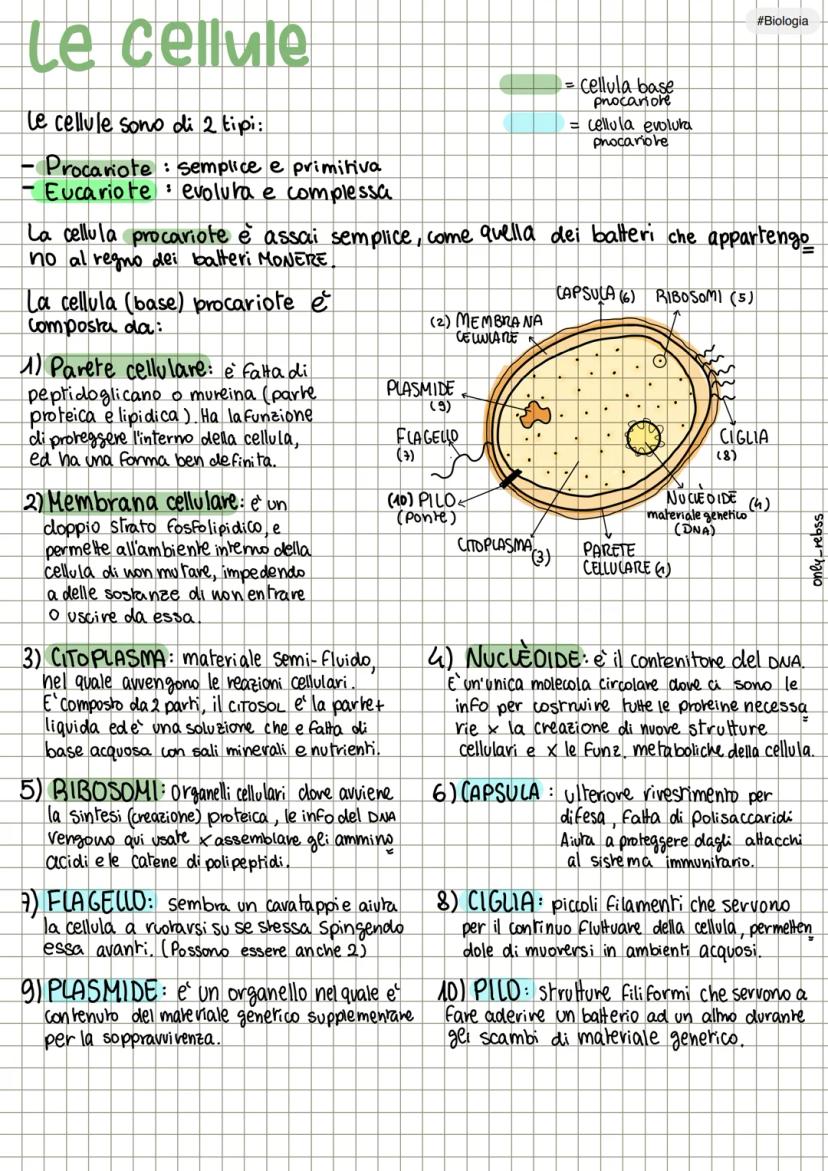 #Biologia
Le Cellule
= cellula base
procariote
= cellula evoluta
procariote
Le cellule sono di 2 tipi:
- Procariote : semplice e primitiva
- Eucariote : evoluta e complessa
La cellula procariote è assai semplice, come quella dei batteri che appartengo
no al regno dei batteri MONERE.
La cellula (base) procariote è
composta da:
1) Parete cellulare: è fatta di
peptidoglicano o mureina (parte
proteica e lipidica). Ha la funzione
di proteggere l'interno della cellula,
ed ha una forma ben definita.
2) Membrana cellulare: è un
doppio strato fosfolipidico, e
permette all'ambiente interno della
cellula di non mutare, impedendo
a delle sostanze di non entrare
o uscire da essa.
CAPSULA (6)
RIBOSOMI (5)
(2) MEMBRANA
CELLULARE
PLASMIDE
(9)
FLAGELLO
(7)
CIGLIA
(8)
(10) PILO
(Ponte)
NUCLÈOIDE (4)
materiale genetico
(DNA)
CITOPLASMA (3)
PARETE
CELLULARE (1)
only_rebss
3) CITOPLASMA: materiale semi-fluido,
nel quale avvengono le reazioni cellulari.
E' composto da 2 parti, il CITOSOL è la parte +
liquida ed è una soluzione che e fatta di
base acquosa con sali minerali e nutrienti.
4) NUCLÈOIDE: è il contenitore del DNA.
E' un'unica molecola circolare dove ci sono le
info per costruire tutte le proteine necessa
rie x la creazione di nuove strutture
cellulari e x le funz. metaboliche della cellula.
5) RIBOSOMI: Organelli cellulari dove avviene
la sintesi (creazione) proteica, le info del DNA
vengono qui usate x assemblare gli ammino
acidi e le catene di polipeptidi.
6) CAPSULA : ulteriore rivestimento per
difesa, fatta di Polisaccaridi
Aiuta a proteggere dagli attacchi
al sistema immunitario.
7) FLAGELLO: sembra un cavatappi e aiuta
la cellula a ruotarsi su se stessa spingendo
essa avanti. (Possono essere anche 2)
8) CIGLIA: piccoli filamenti che servono
per il continuo fluttuare della cellula, permetten
dole di muoversi in ambienti acquosi.
9) PLASMIDE: è un organello nel quale è
contenuto del materiale genetico supplementare
per la sopravvivenza.
10) PILO: strutture filiformi che servono a
fare aderire un batterio ad un altro durante
gli scambi di materiale genetico.